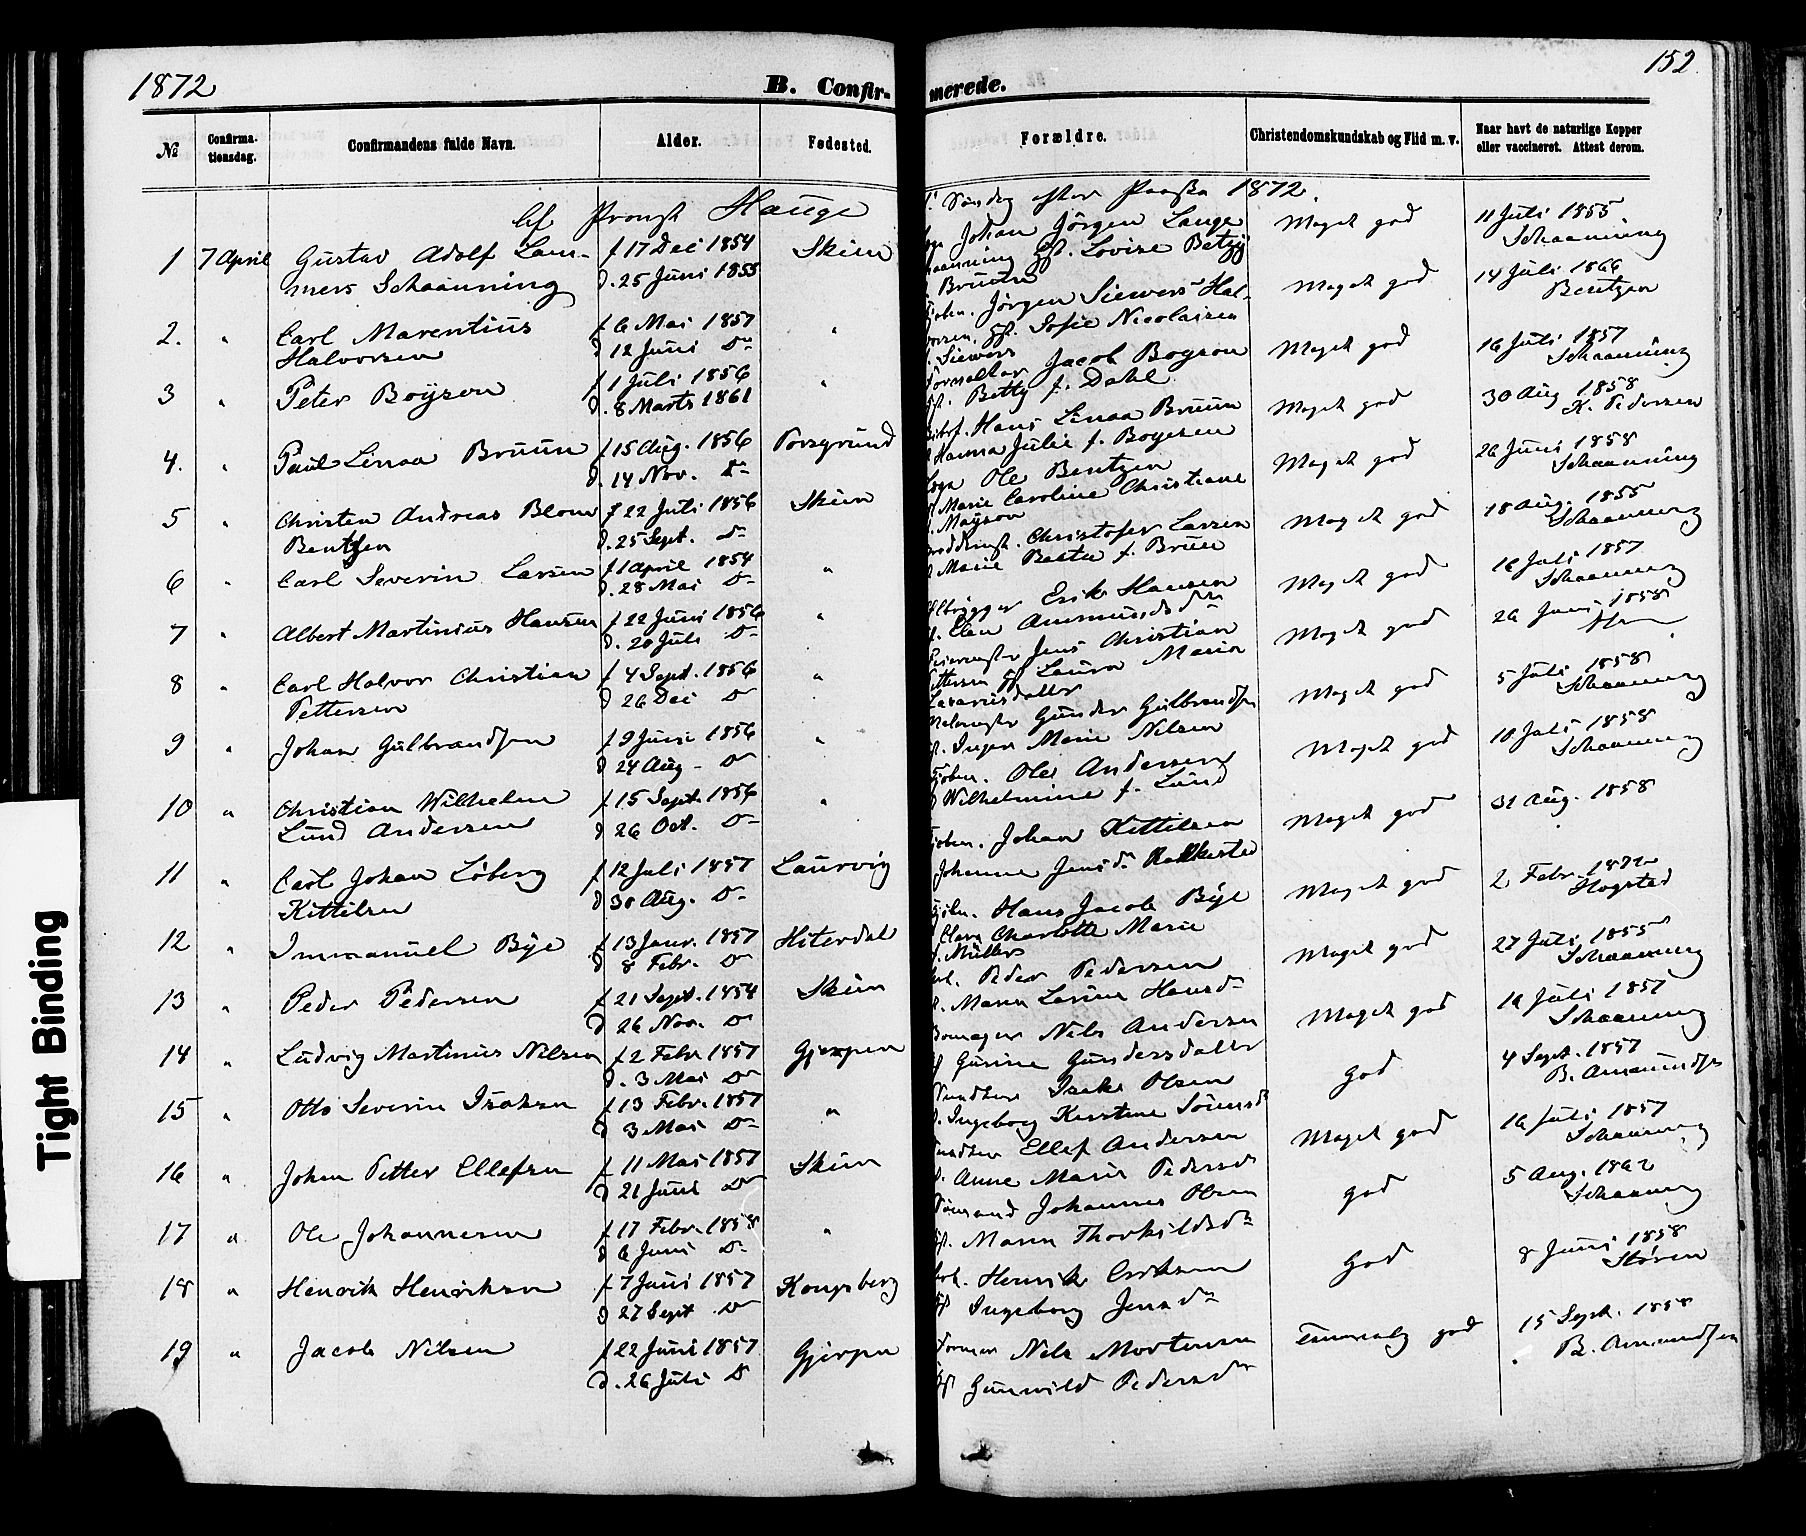 1872
152.
B. Confirmerede.
№
Confirmationsdag.
Confirmandens fulde Navn.
Alder.
Fødested.
Forældre.
Christendomskundskab og Flid m. v.
Naar havt de naturlige Kopper eller vaccineret. Attest derom.
Af Provst Hauge
1' Søndag efter Paaske 1872.
1 7 April Gustav Adolf Lam- f 17 Dec 1854 Skien Johan Jörgen Lange Meget god 11 Juli 1855
mers Schaanning d. 25 Juni 1855 Lovise Betzy Schaanning
Bruun
2. " Carl Marentius f 6 Mai 1857 " Jörgen Siewers Hal- Meget god 14 Juli 1866
Halvorsen d 12 Juni Do vorsen, Sofie Nicolaisen Bentzen
f. Siewers
3 " Peter Boyson f 1 Juli 1856 " Forvalter Jacob Boyson Meget god 16 Juli 1857
d. 8 Marts 1861 Betty f. Dahl Schaanning
4. " Paul Linaa Bruun f 15 Aug. 1856 Porsgrund Hans Linaa Bruun Meget god 30 Aug 1858
d. 14 Nov. Do Hanna Julie f. Boyesen K. Pedersen
5 " Christen Andreas Blom f 22 Juli 1856 Skien Ole Bentzen Meget god 26 Juni 1858
Bentzen d. 25 Sept. Do Marie Caroline Christiane Schaanning
6 " Carl Severin Larsen f 1 April 1854 " Christofer Larsen Meget god 18 Aug. 1855
d. 28 Mai Do Marie f. Bruun Schaanning
7 " Albert Martinius Hansen f 22 Juni 1856 " Erik Hansen Meget god 16 Juli 1857
d. 20 Juli Do Amundsdr Schaanning
8 " Carl Halvor Christian f 4 Sept. 1856 " Jens Christian Meget god 26 Juni 1858
Pettersen d 26 Dec Do Pettersen Laura Maria
Lazarusdatter
9 " Johan Gulbrandsen f 9 Juni 1856 " Gunder Gulbrandsen Meget god 5 Juli 1858
d 24 Aug Do Inger Marie Nilsen Schaanning
10 " Christian Wilhelm f 15 Sept. 1856 " Ole Andersen Meget god 10 Juli 1858
Lund Andersen d 26 Oct. Do Wilhelmine f. Lund Schaanning
11 " Carl Johan Löberg f 12 Juli 1857 Laurvig Johan Kittilsen Meget god 31 Aug. 1858
Kittilsen d 30 Aug. Do Johanne Jensdr
12 " Immanuel Bye f 13 Janr. 1857 Hiterdal Hans Jacob Bye Meget god 2 Febr. 1872
d 8 Febr. Do Charlotte Marie Hogstad
f. Müller
13 " Peder Pedersen f 21 Sept. 1854 Skien Peder Pedersen Meget god 27 Juli 1855
d 26 Nov. Do Maren Hansdr Schaanning
14 " Ludvig Martinus Nilsen f 2 Febr 1857 Gjerpen Nils Andersen Meget god 16 Juli 1857
d. 3 Mai Do Gurine Gundersdatter Schaanning
15 " Otto Severin Isaksen f 13 Febr. 1857 " Isak Olsen God 4 Sept. 1857
d 3 Mai Do Ingeborg Kirstine B. Amundsen
16 " Johan Petter Ellefsen f 11 Mai 1857 Skien Ellef Andersen Meget god 16 Juli 1857
d 21 Juni Do Anne Marie Pedersdr Schaanning
17 " Ole Johannesen f 17 Febr. 1858 " Johannes Olsen god 5 Aug. 1862
d 6 Juni Do Maren Thorkildsdr Schaanning
18 " Henrik Henriksen f 7 Juni 1857 Kongsberg Henrik Eriksen God 8 Juni 1858
d 27 Sept Do Ingeborg Jensdr Støren
19 " Jacob Nilsen f 22 Juni 1857 Gjerpen Nils Mortensen Temmelig god 15 Sept. 1858
d. 26 Juli Do Gunvild Pedersdr B. Amundsen
Tight Binding